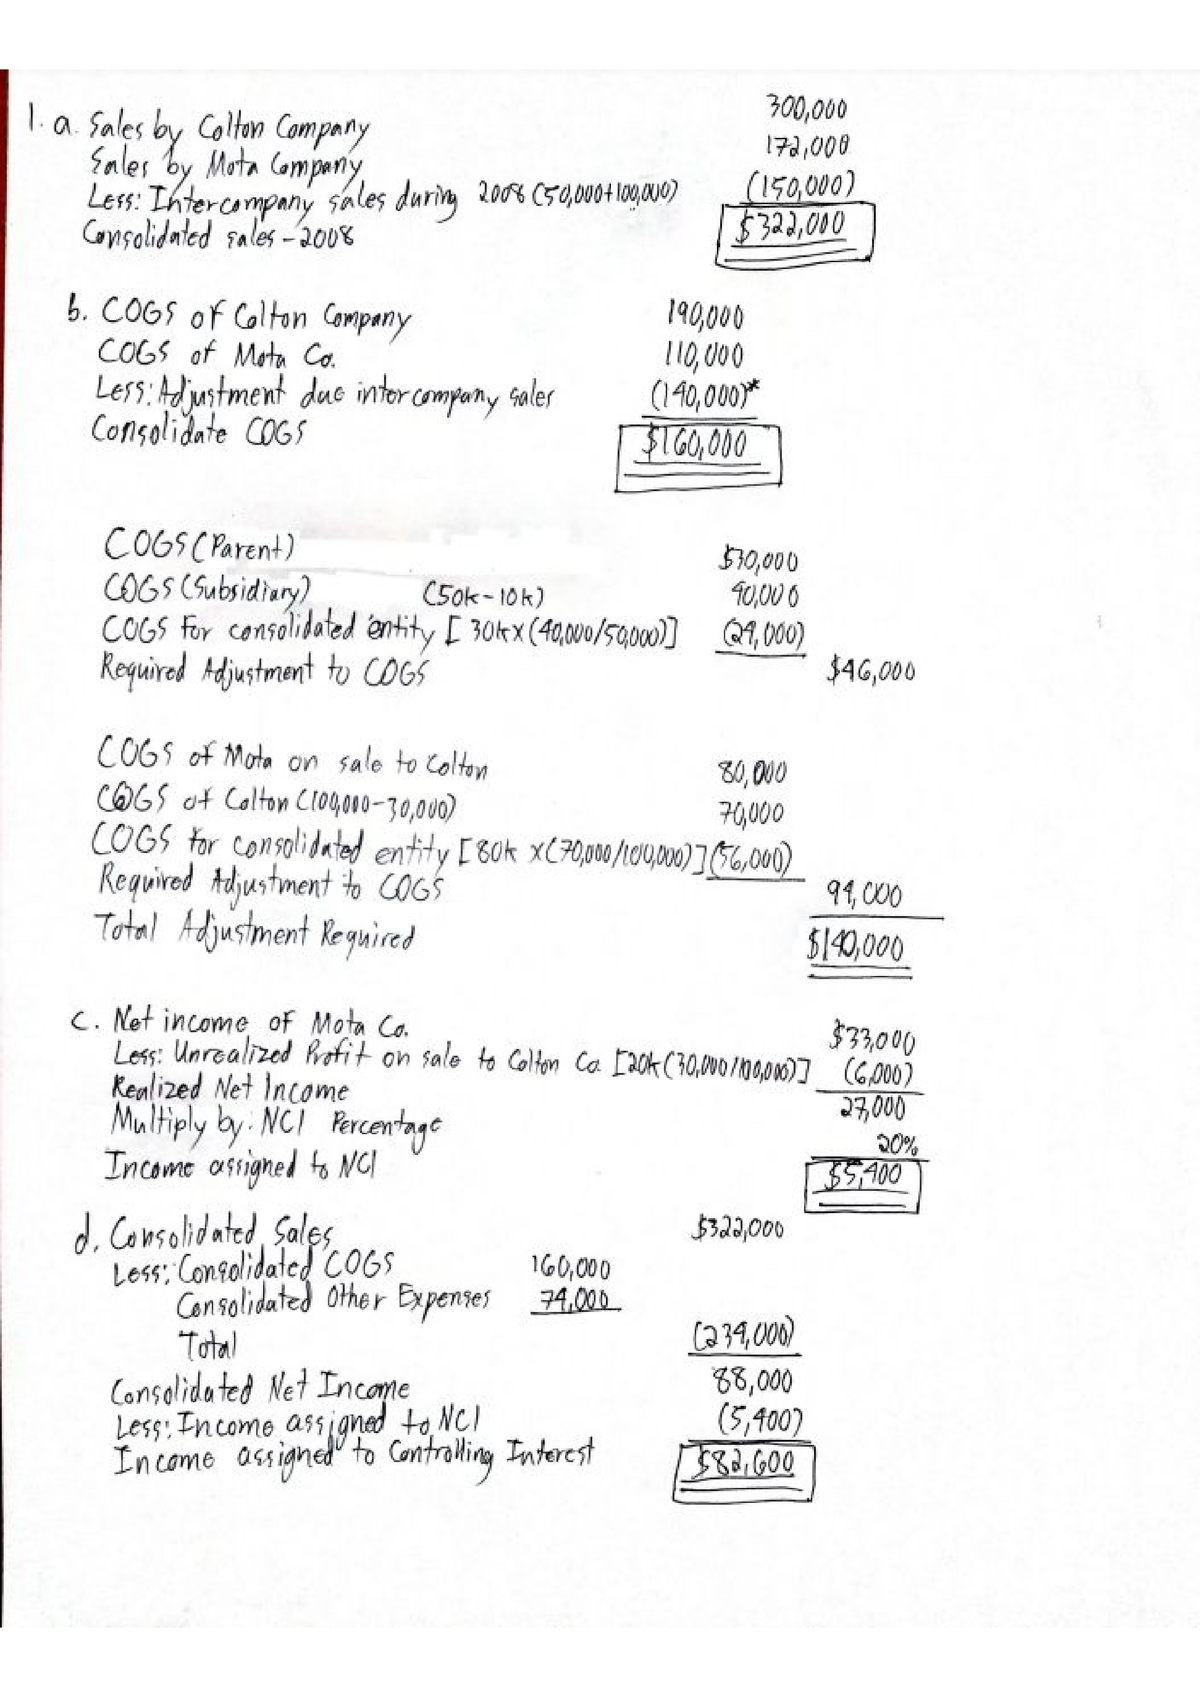 1. a. Sales by Colton Company 300,000
Sales by Mota Company 172,000
Less: Intercompany sales during 2008 (50,000+100,000) (150,000)
Consolidated sales - 2008 $322,000
b. COGS of Colton Company 190,000
COGS of Mota Co. 110,000
Less: Adjustment due intercompany sales (140,000)*
Consolidate COGS $160,000
COGS (Parent) $30,000
COGS (Subsidiary) (50k-10k) 40,000
COGS for consolidated entity [30k x (40,000/50,000)] (24,000)
Required Adjustment to COGS $46,000
COGS of Mota on sale to Colton 80,000
COGS of Colton (100,000-30,000) 70,000
COGS for consolidated entity [80k x (70,000/100,000)] (56,000)
Required Adjustment to COGS 94,000
Total Adjustment Required $140,000
c. Net income of Mota Co. $33,000
Less: Unrealized Profit on sale to Colton Co. [20k (30,000/100,000)] (6,000)
Realized Net Income 27,000
Multiply by: NCI Percentage 20%
Income assigned to NCI $5,400
d. Consolidated Sales $322,000
Less: Consolidated COGS 160,000
Consolidated Other Expenses 74,000
Total (234,000)
Consolidated Net Income 88,000
Less: Income assigned to NCI (5,400)
Income assigned to Controlling Interest $82,600